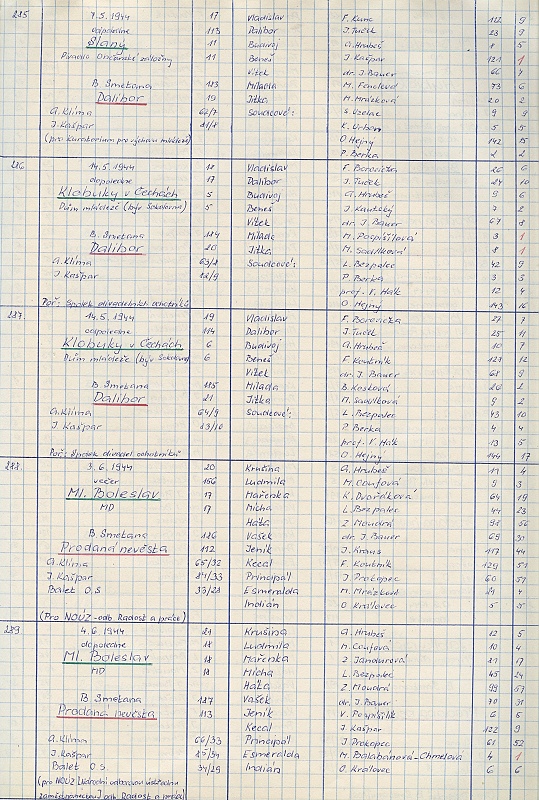 285 7.5.1944 17 Vladislav F. Kunc 122 9
odpoledne 113 Dalibor J. Tuček 23 9
Slaný 11 Budivoj A. Hrubeš 8 5
Divadlo Občanské záložny 11 Beneš J. Kašpar 121 1
Vítek dr. J. Bauer 66 7
B. Smetana 183 Milada 73 6
Dalibor 19 Jitka M. Mrázková 20 2
A. Klíma 62/7 Soudcové: S. Vzelac 9 9
J. Kašpar 21/8 K. Urban 5 5
(pro Kuratorium pro výchovu mládeže) O. Hejný 142 15
P. Berka 2 2
286 14.5.1944 18 Vladislav F. Borovička 26 6
dopoledne 17 Dalibor J. Tuček 24 10
Klobuky v Čechách 5 Budivoj A. Hrubeš 9 6
Dům mládeže (býv. Sokolovna) 5 Beneš J. Kautský 7 2
Vítek dr. J. Bauer 67 8
B. Smetana 184 Milada M. Pospíšilová 3 1
Dalibor 20 Jitka M. Saudková 8 1
A. Klíma 63/8 Soudcové: L. Bezpalec 42 9
J. Kašpar 22/9 P. Berka 3 3
prof. V. Hák 12 4
Poř: Spolek divadelních ochotníků O. Hejný 143 16
287. 14.5.1944 19 Vladislav F. Borovička 27 7
odpoledne 114 Dalibor J. Tuček 25 11
Klobuky v Čechách 6 Budivoj A. Hrubeš 10 7
Dům mládeže (býv. Sokolovna) 6 Beneš F. Koutník 127 12
Vítek dr. J. Bauer 68 9
B. Smetana 185 Milada B. Kosková 26 2
Dalibor 21 Jitka M. Saudková 9 2
A. Klíma 64/9 Soudcové: L. Bezpalec 43 10
J. Kašpar 23/10 P. Berka 4 4
prof. V. Hák 13 5
Poř: Spolek divadel. ochotníků O. Hejný 144 17
288. 3.6.1944 20 Krušina A. Hrubeš 11 4
večer 156 Ludmila M. Coufová 9 3
Ml. Boleslav 17 Mařenka K. Dvořáková 64 19
MD 17 Mícha L. Bezpalec 44 23
Háta Z. Moudrá 98 56
B. Smetana 186 Vašek dr. J. Bauer 69 30
Prodaná nevěsta 112 Jeník J. Kraus 117 44
A. Klíma 65/32 Kecal F. Koutník 129 51
J. Kašpar 24/33 Principál J. Prokopec 60 51
Balet O.S. 33/28 Esmeralda M. Mrázková 21 4
Indián O. Královec 5 5
(Pro NOÚZ - odb. Radost a práce)
289 4.6.1944 21 Krušina A. Hrubeš 12 5
dopoledne 18 Ludmila M. Coufová 10 4
Ml. Boleslav 18 Mařenka Z. Jandurová 21 17
MD 18 Mícha L. Bezpalec 45 24
Háta Z. Moudrá 99 57
B. Smetana 187 Vašek dr. J. Bauer 70 31
Prodaná nevěsta 113 Jeník V. Pospíšilík 6 6
Kecal J. Kašpar 122 9
A. Klíma 66/33 Principál J. Prokopec 61 52
J. Kašpar 25/34 Esmeralda M. Balabánová-Chmelová 4 1
Balet O.S. 34/29 Indián O. Královec 6 6
(pro NOÚZ [Národní odborovou ústřednu
zaměstnaneckou] odb. Radost a práce)